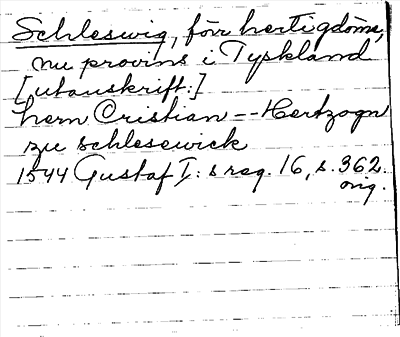 Schleswig, förr hertigdöme,
nu provins i Tyskland
[utanskrift:]
hern Cristian -- Hertzogn
zu schlesewick
1544 Gustaf I: s reg. 16, s. 362.
orig.